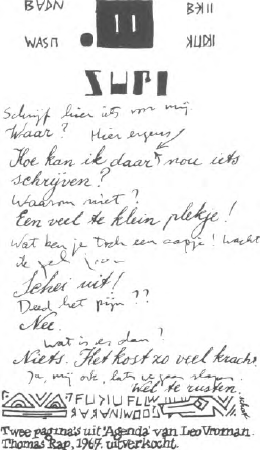 BADN
WASN
II
Schrijf hier iets voor mij.
Waar? Hier ergens
Hoe kan ik daar nou iets
schrijven?
Waarom niet?
Een veel te klein plekje!
Wat ben je toch een aapje! Wacht
ik
Schei uit!
Deed het pijn??
Nee.
Wat is er dan?
Niets. Het kost zo veel kracht.
Ja, mij ook, laten we gaan slapen.
Wel te rusten.
Twee pagina's uit 'Agenda' van Leo Vroman.
Thomas Rap, 1967. uitverkocht.